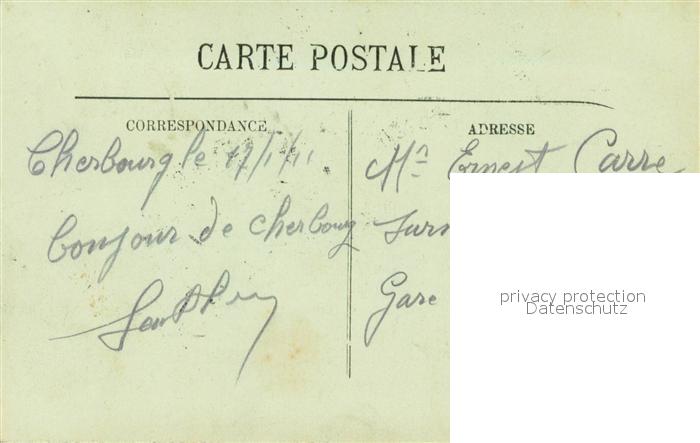 CARTE POSTALE
CORRESPONDANCE
ADRESSE
Cherbourg le 17/1/11
bonjour de cherbourg
Mr Ernest Carre
Gare
privacy protection
Datenschutz